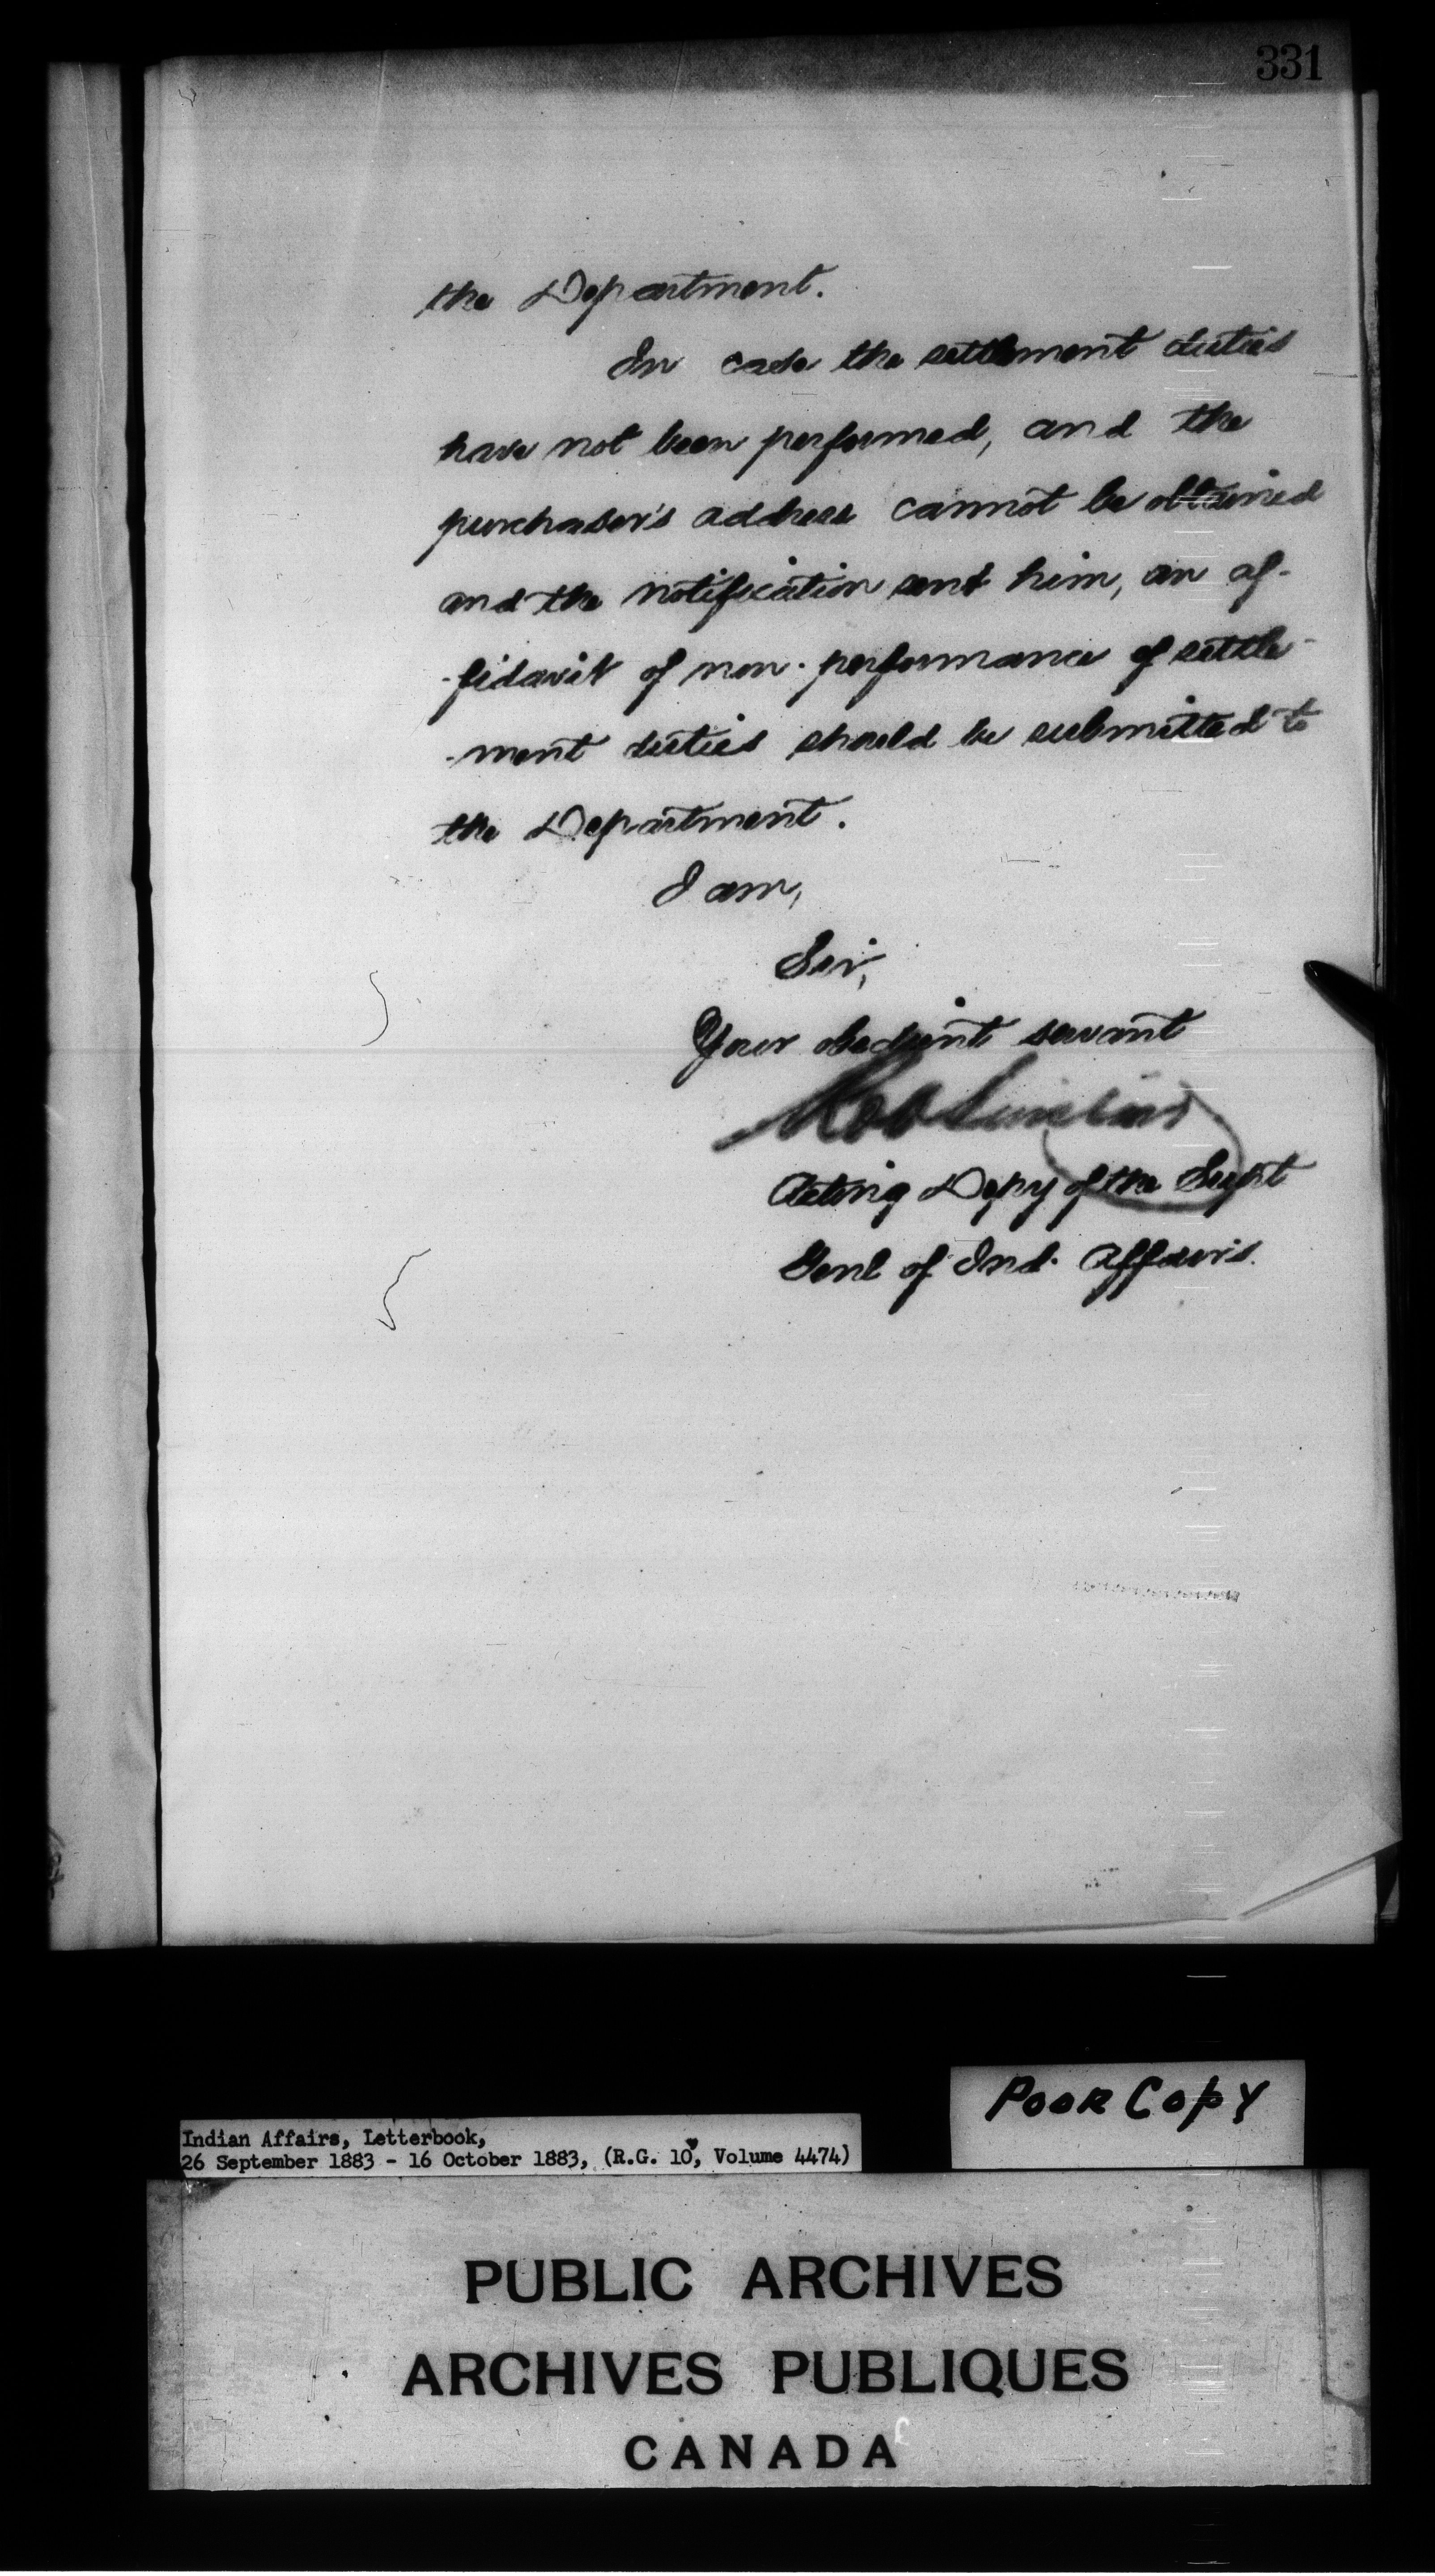 331
the Department.
In case the settlement duties
have not been performed, and the
purchaser's address cannot be obtained
and the notification sent him, an af-
-fidavit of non-performance of settle-
-ment duties should be submitted to
the Department.
I am,
Sir,
Your obedient servant
Rob Sinclair
Acting Depy of the Supt
Genl of Ind. Affairs.
Poor Copy
Indian Affairs, Letterbook,
26 September 1883 - 16 October 1883, (R.G. 10, Volume 4474)
PUBLIC ARCHIVES
ARCHIVES PUBLIQUES
CANADA